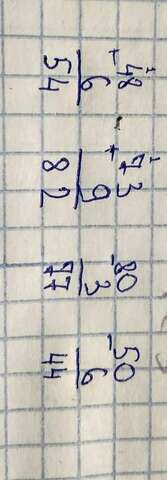 1 1
+ 48 + 73 - 80 - 50
6 9 3 6
54 82 77 44